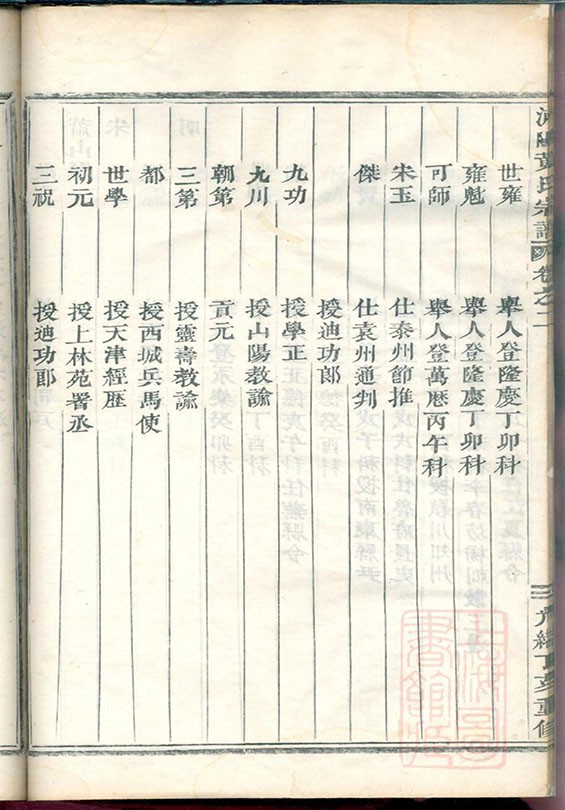 黃氏宗譜 卷之二 三 光緒丁亥重修
世雍 舉人登隆慶丁卯科
雍魁 舉人登隆慶丁卯科
可師 舉人登萬曆丙午科
朱玉 仕泰州節推
傑 仕袁州通判
授迪功郎
九功 授學正
九川 授山陽教諭
朝第 貢元
三第 授靈壽教諭
都 授西城兵馬使
世學 授天津經歷
初元 授上林苑署丞
三祝 授迪功郎
上海圖書館藏